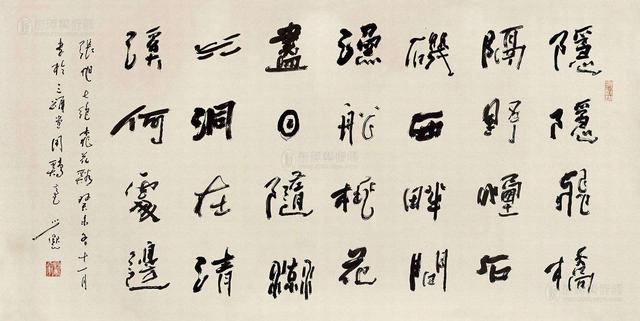 隱隱飛橋
隔野煙石
磯西畔問
漁船桃花
盡日隨流
水洞在清
溪何處邊
張旭七絕桃花谿癸未冬十一月
書於三堂周之默